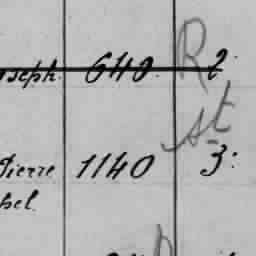 oseph. 640. R 2.
st
Pierre 1140 3.
hel.